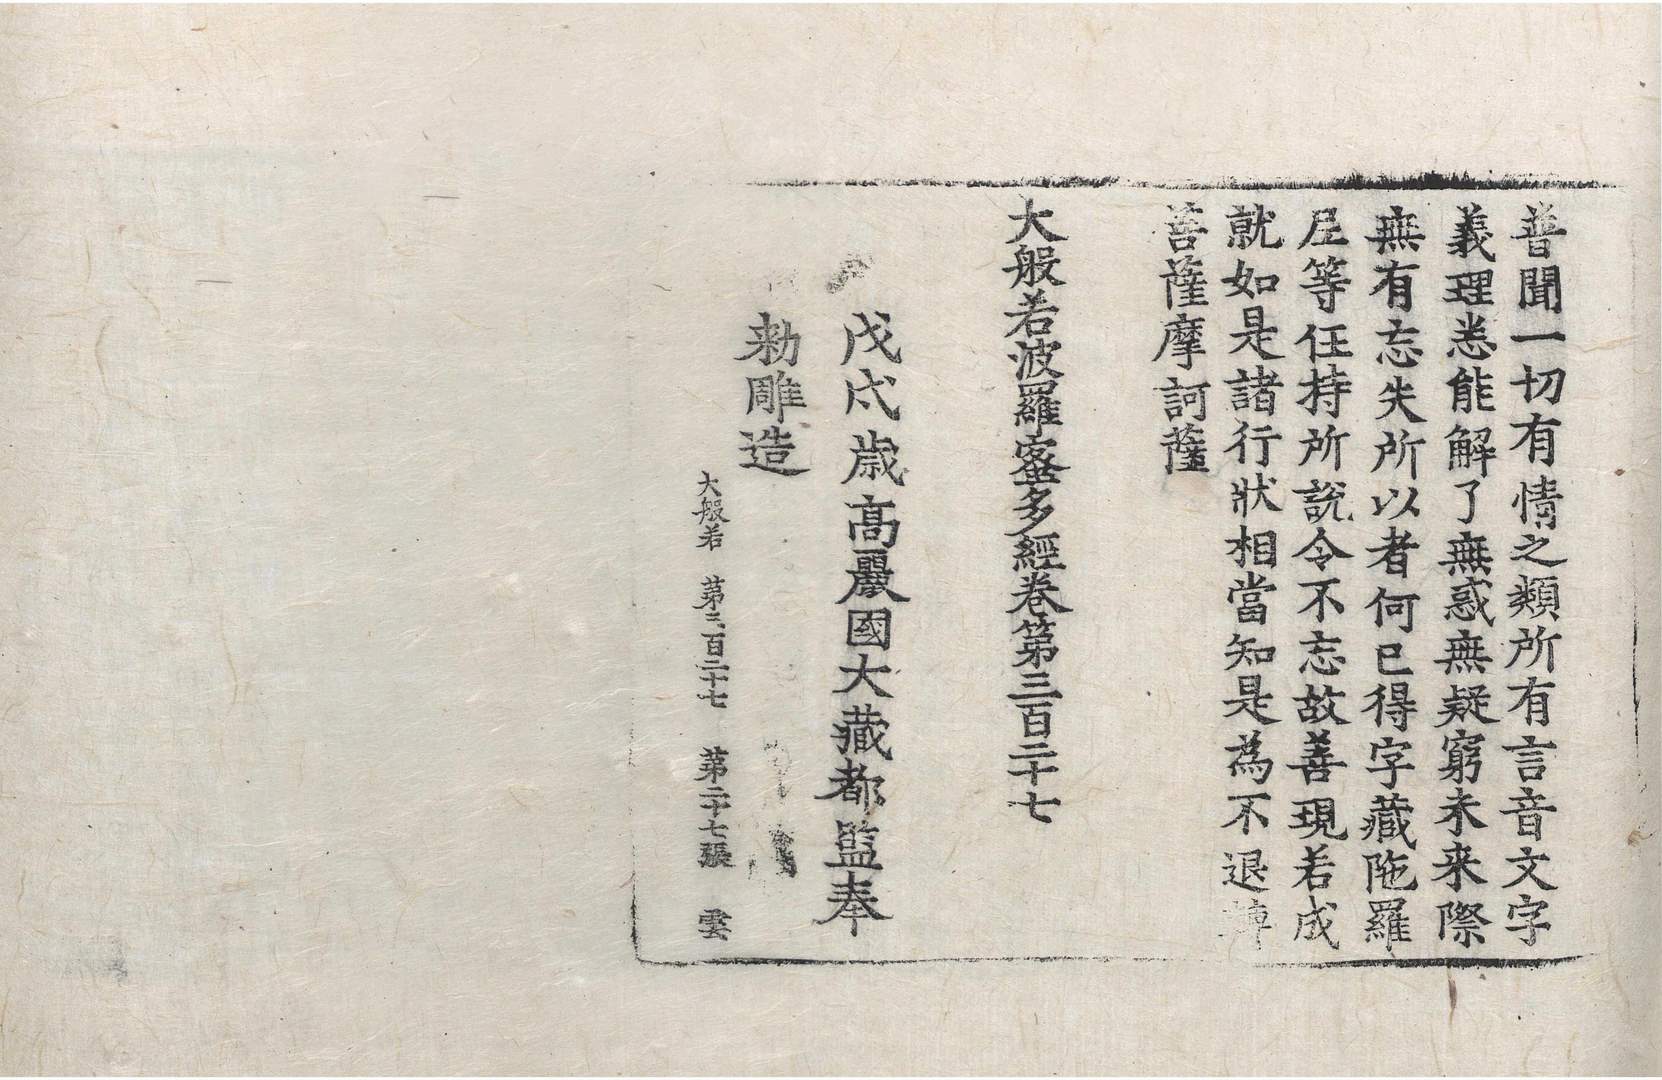 普聞一切有情之類所有言音文字
義理悉能解了無惑無疑窮未来際
無有忘失所以者何已得字藏陁羅
尼等任持所說令不忘故善現若成
就如是諸行狀相當知是為不退轉
菩薩摩訶薩
大般若波羅蜜多經卷第三百二十七
戊戌歲高麗國大藏都監奉
勑雕造
大般若 第三百二十七 第二十七張 雲